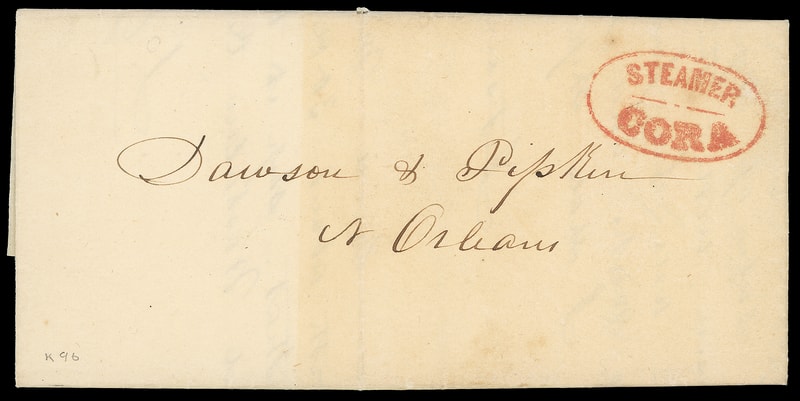 STEAMER
CORA
Dawson & Pipkin
N Orleans
K 96